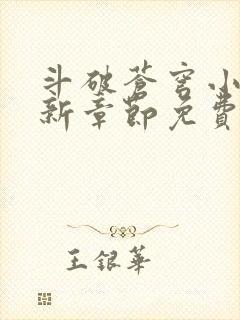 斗破苍穹小
新章節免費
王銀華